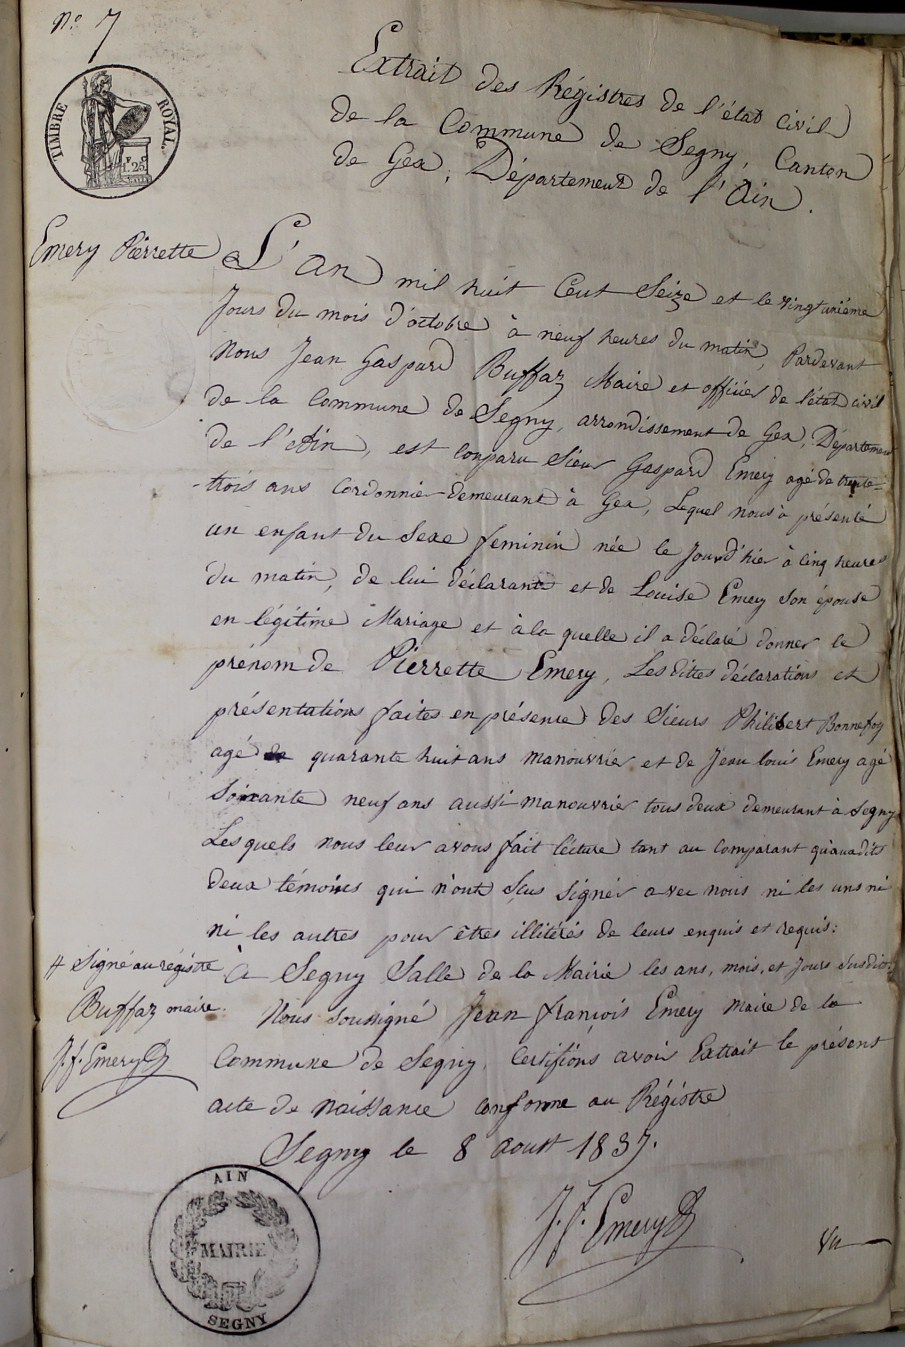 N.° 7
TIMBRE ROYAL.
1. 25
Extrait des Régistres de l'état civil
de la Commune de Segny, Canton
de Gex, Département de l'Ain.
Emery Pierrette
L'an mil huit Cent Seize et le vingtunième
Jours du mois d'octobre à neuf heures du matin, Pardevant
Nous Jean Gaspard Buffaz Maire et officier de l'état civil
de la Commune de Segny, arrondissement de Gex, Département
de l'Ain, est comparu Sieur Gaspard Emery agé de trente-
-trois ans Cordonnier demeurant à Gex, Lequel nous à présenté
un enfant du Sexe feminin née le Jourd'hier à cinq heures
du matin, de lui déclarant et de Louise Emery Son épouse
en légitime Mariage et à la quelle il a déclaré donner le
prénom de Pierrette Emery, Les dittes déclarations et
présentations faites en présence des Sieurs Philibert Bonnefoy
agé de quarante huit ans manouvrier et de Jean louis Emery agé
Soixante neuf ans aussi manouvrier tous deux demeurant à Segny
Lesquels nous leur avons fait lécture tant au Comparant qu'auxdits
deux témoins qui n'ont Sus Signer avec nous ni les uns ni
ni les autres pour êtres illitérés de leurs enquis et requis:
A Segny Salle de la Mairie les ans, mois, et Jours Susdits.
# Signé au régistre
Buffaz maire.
J. f. Emery
Nous Soussigné Jean françois Emery Maire de la
Commune de Segny, Certifions avoir Extrait le présent
acte de Naissance conforme au Régistre
Segny le 8 aoust 1837.
J. f. Emery
Vu
AIN
MAIRIE
SEGNY